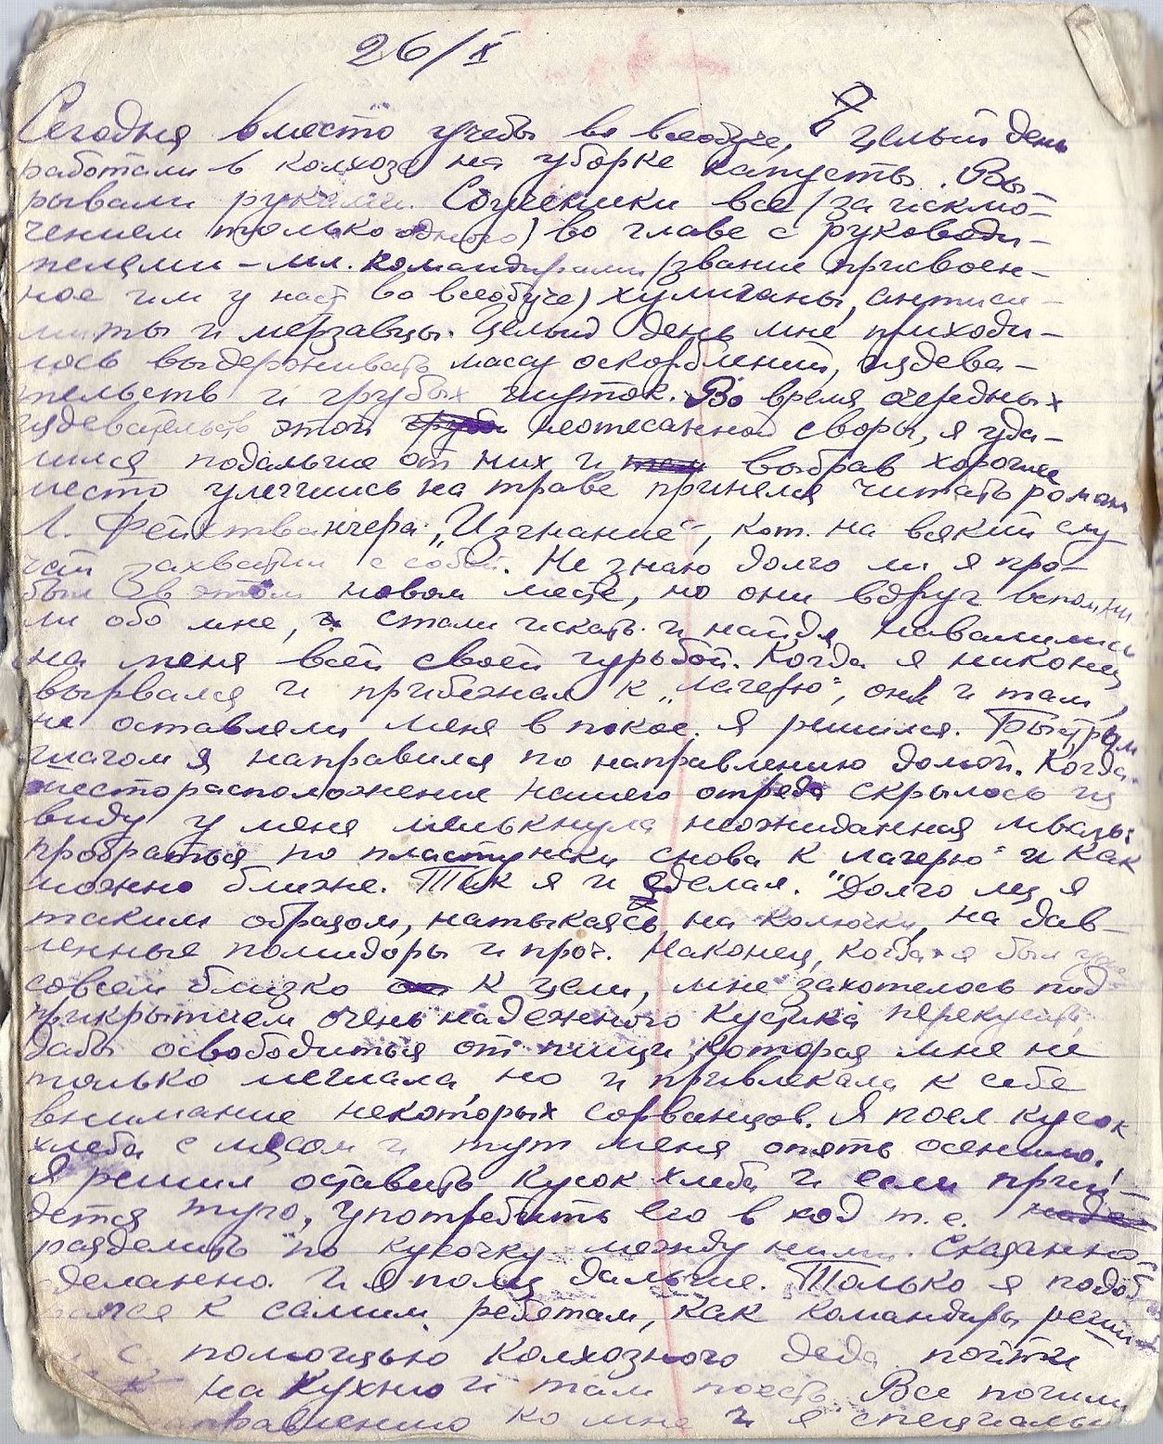 26/X
Сегодня вместо учебы во всеобуче, я целый день
работали в колхозе на уборке капусты. Вы-
рывали руками. Соученики все (за исклю-
чением только одного) во главе с руководи-
телями – мл. командирами (звание присвоен-
ное им у нас во всеобуче) хулиганы, антисе-
миты и мерзавцы. Целый день мне приходи-
лось выдерживать массу оскорблений, издева-
тельств и грубых шуток. Во время очередных
издевательств этой неотесанной своры, я уда-
лился подальше от них и выбрав хорошее
место улегшись на траве принялся читать роман
Л. Фейхтвангера „Изгнание“, кот. на всякий слу
чай захватил с собой. Не знаю долго ли я про-
был в этом новом месте, но они вдруг вспомни
ли обо мне, стали искать и найдя навалились
на меня всей своей гурьбой. Когда я наконец
вырвался и прибежал к „лагерю“, они и там
не оставляли меня в покое. Я решился. Быстрым
шагом я направился по направлению домой. Когда
месторасположение нашего отряда скрылось из
виду у меня мелькнула неожиданная мысль:
пробраться по пластунски снова к „лагерю“ и как
можно ближе. Так я и сделал. Долго лез я
таким образом, натыкаясь на колючки, на дав-
ленные помидоры и проч. Наконец, когда я был уже
совсем близко к цели, мне захотелось под
прикрытием очень надежного кустика перекусить,
дабы освободиться от пищи, которая мне не
только мешала, но и привлекала к себе
внимание некоторых сорванцов. Я поел кусок
хлеба с мясом и тут меня опять осенило.
Я решил оставить кусок хлеба и если прий-
дется туго, употребить его в ход т.е.
разделить по кусочку между ними. Сказанно
сделанно. И я полз дальше. Только я подоб
рался к самим ребятам, как командиры реши
с помощью колхозного деда пойти
на кухню и там поесть. Все пошли
направлению ко мне и я специаль